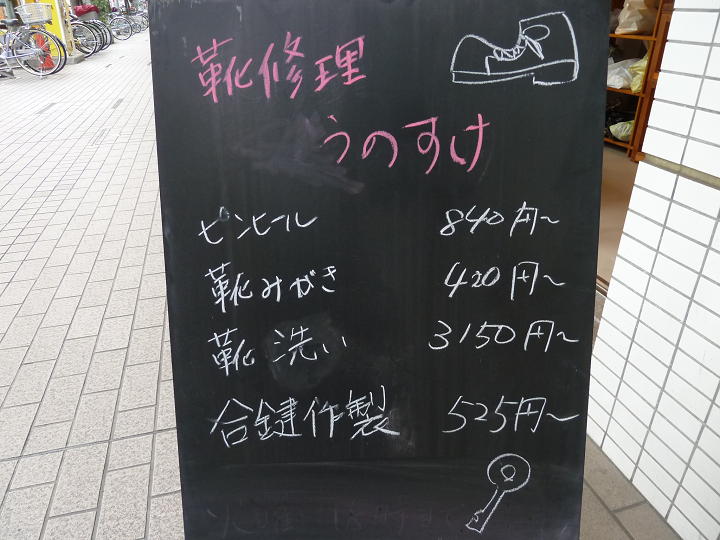 靴修理
うのすけ
ピンヒール 840円〜
靴みがき 420円〜
靴洗い 3150円〜
合鍵作製 525円〜